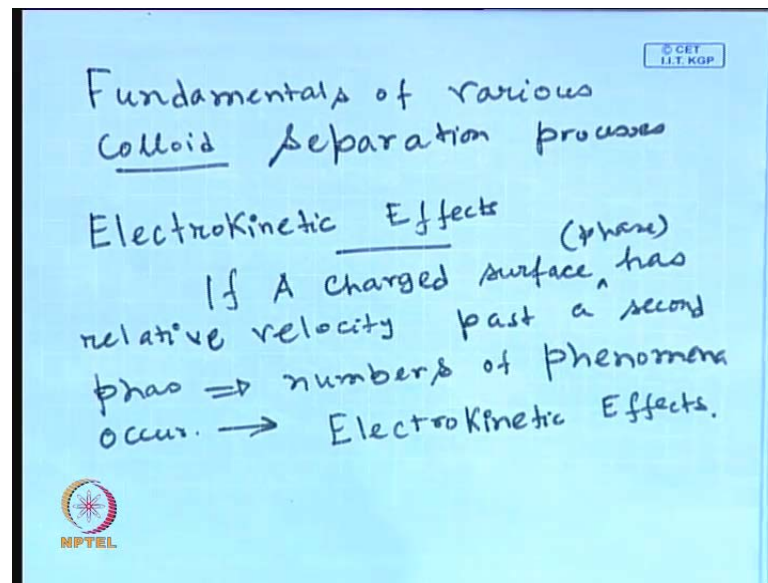 © CET
I.I.T. KGP
Fundamentals of various
Colloid Separation processes
Electrokinetic Effects
(phase)
If A charged surface ^ has
relative velocity past a second
phas => numbers of phenomena
occur. → Electrokinetic Effects.
NPTEL